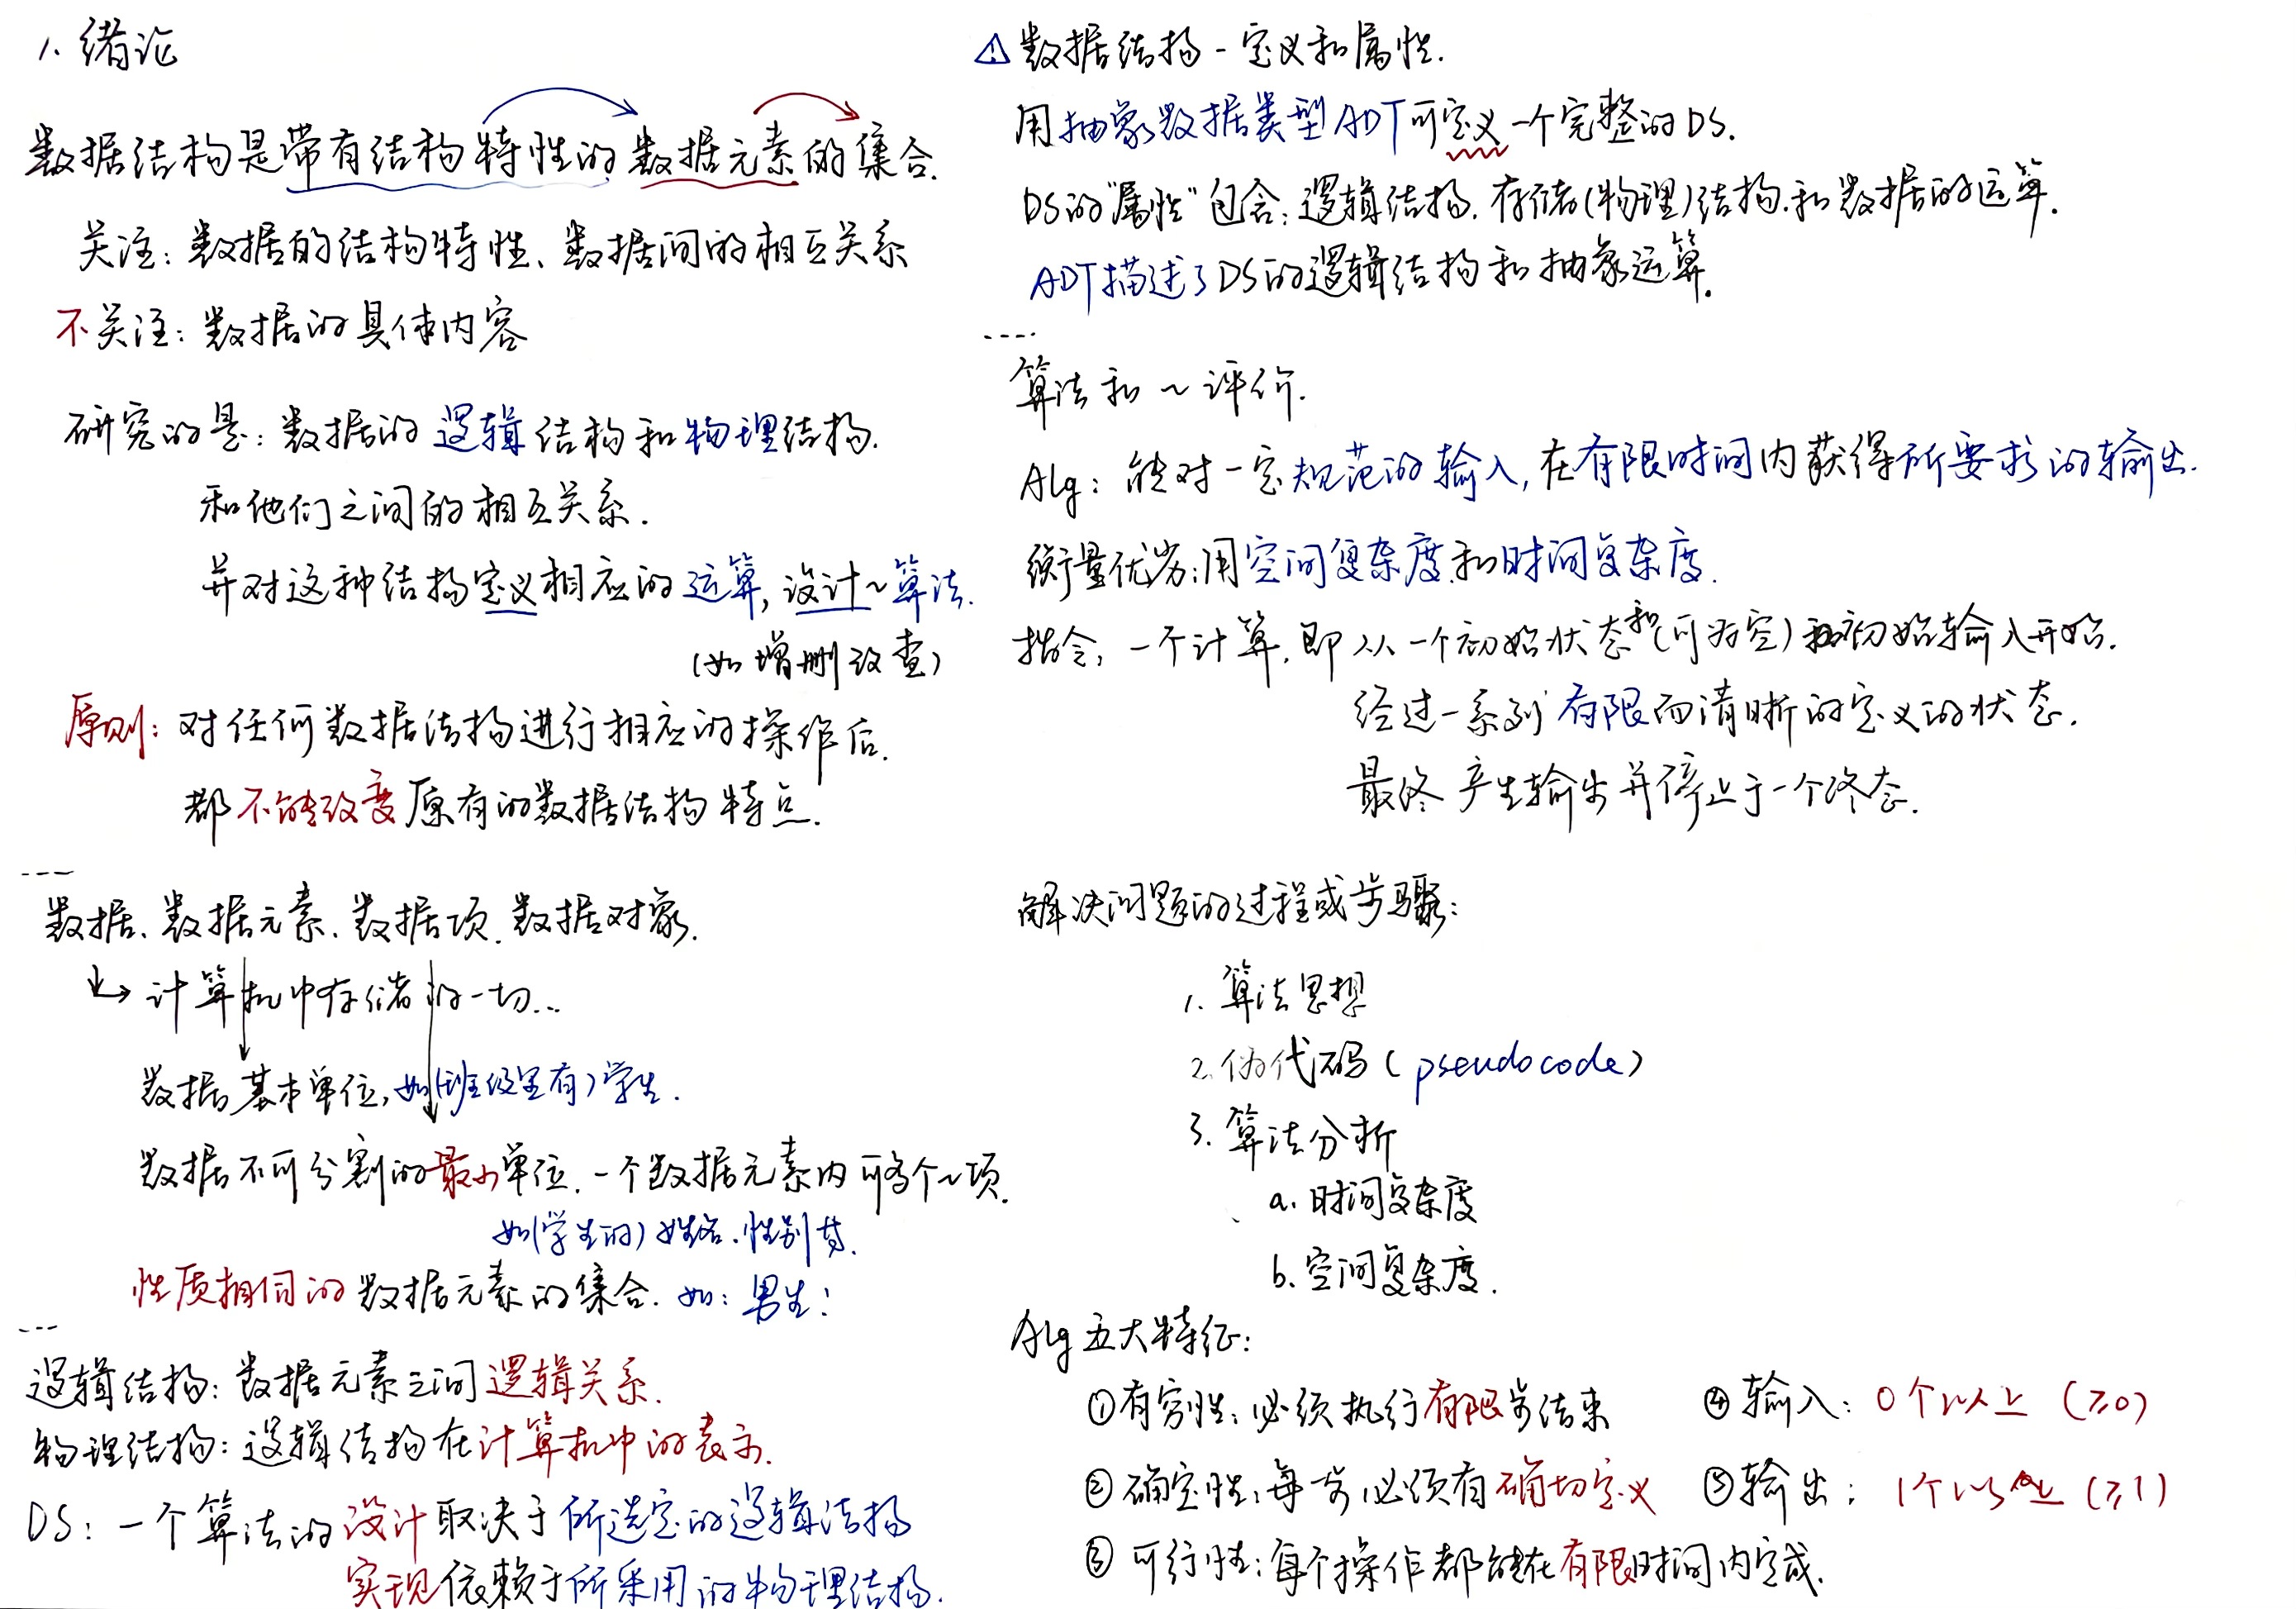 1. 绪论
数据结构是带有结构特性的数据元素的集合.
关注: 数据的结构特性、数据间的相互关系
不关注: 数据的具体内容
研究的是: 数据的逻辑结构和物理结构.
和他们之间的相互关系.
并对这种结构定义相应的运算, 设计~算法.
(如增删改查)
原则: 对任何数据结构进行相应的操作后.
都不能改变原有的数据结构特点.
---
数据、数据元素、数据项、数据对象.
↳ 计算机中存储的一切...
数据基本单位, 如(班级里有)学生.
数据不可分割的最小单位. 一个数据元素内可多个~项.
如(学生的)姓名、性别等.
性质相同的数据元素的集合. 如: 男生!
---
逻辑结构: 数据元素之间逻辑关系.
物理结构: 逻辑结构在计算机中的表示.
DS: 一个算法的设计取决于所选定的逻辑结构
实现依赖于所采用的物理结构.
⚠ 数据结构 - 定义和属性.
用抽象数据类型ADT可定义一个完整的DS.
DS的"属性"包含: 逻辑结构. 存储(物理)结构.和数据的运算.
ADT描述了DS的逻辑结构和抽象运算.
----
算法和~评价.
Alg: 能对一定规范的输入, 在有限时间内获得所要求的输出.
衡量优劣: 用空间复杂度和时间复杂度.
指令: 一个计算. 即从一个初始状态和(可为空)初始输入开始.
经过一系列有限而清晰的定义的状态.
最终产生输出并停止于一个终态.
解决问题的过程或步骤:
1. 算法思想
2. 伪代码 (pseudocode)
3. 算法分析
a. 时间复杂度
b. 空间复杂度.
Alg 五大特征:
①有穷性: 必须执行有限步结束
②确定性: 每步必须有确切定义
③可行性: 每个操作都能在有限时间内完成.
④输入: 0个以上 (≥0)
⑤输出: 1个以上 (≥1)